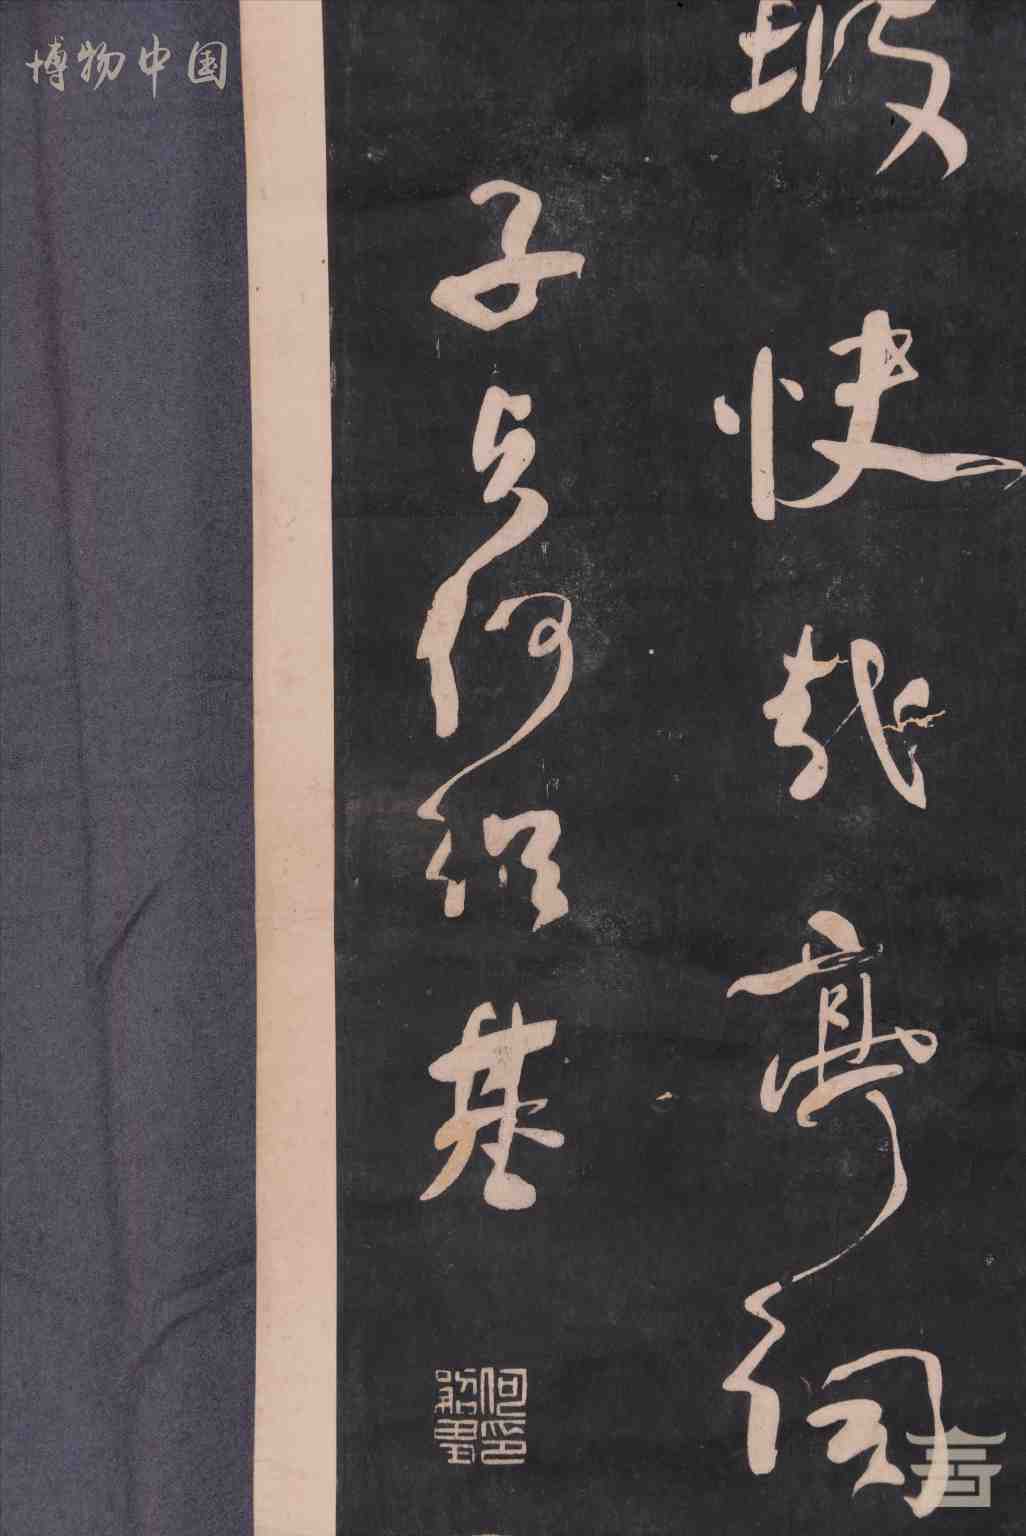 坡快哉亭词
子贞何绍基
何绍基印
博物中国